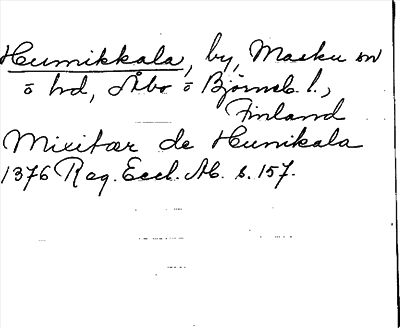 Humikkala, by, Masku sn
o hd, Åbo o Björneb. l.,
Finland
Mixitar de Hunikala
1376 Reg. Eccl. Ab. s. 157.